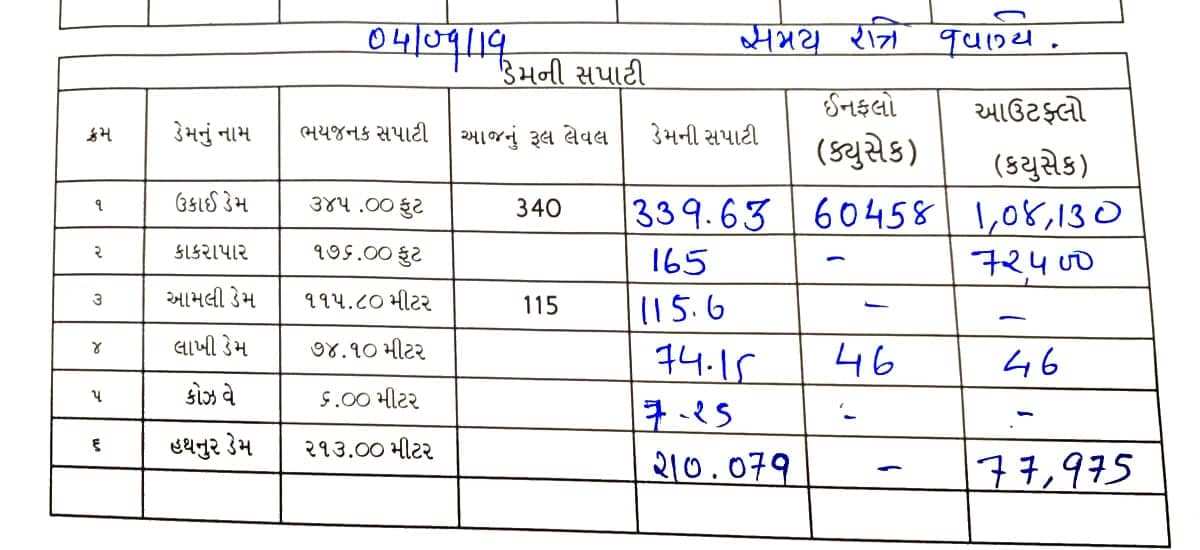 04/09/19 સમય રાત્રિ ૧વાગ્યે.
ડેમની સપાટી
ક્રમ ડેમનું નામ ભયજનક સપાટી આજનું રૂલ લેવલ ડેમની સપાટી ઈનફલો (ક્યુસેક) આઉટફ્લો (કયુસેક)
૧ ઉકાઈ ડેમ ૩૪૫.૦૦ ફુટ 340 339.63 60458 1,08,130
૨ કાકરાપાર ૧૭૬.૦૦ ફુટ 165 - 72,400
૩ આમલી ડેમ ૧૧૫.૮૦ મીટર 115 115.6 - -
૪ લાખી ડેમ ૭૪.૧૦ મીટર 74.15 46 46
૫ કોઝ વે ૬.૦૦ મીટર 7.25 - -
૬ હથનુર ડેમ ૨૧૩.૦૦ મીટર 210.079 - 77,975